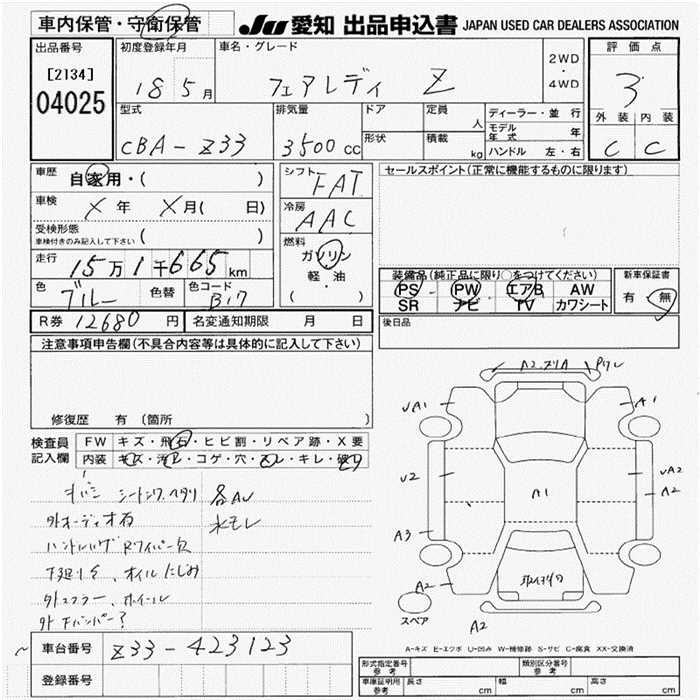 車内保管・守衛保管
JU 愛知 出品申込書 JAPAN USED CAR DEALERS ASSOCIATION
出品番号
[2134]
04025
初度登録年月
18 5月
車名・グレード
フェアレディ Z
2WD
・
4WD
評価点
3
外装 内装
C C
型式
CBA-Z33
排気量
3500 cc
ドア
形状
定員
人
積載
kg
ディーラー・並行
モデル年式 年
ハンドル 左・右
車歴
自家用・( )
車検
X 年 X 月( 日)
受検形態
車検付きのみ記入して下さい ( )
走行
15万1千665km
色
ブルー
色替
色コード
B17
シフト
FAT
冷房
AAC
燃料
ガソリン
軽・油
( )
セールスポイント(正常に機能するものに限ります)
装備品(純正品に限り○をつけてください)
PS PW エアB AW
SR ナビ TV カワシート
新車保証書
有 無
R券 12680 円
名変通知期限 月 日
後日品
注意事項申告欄(不具合内容等は具体的に記入して下さい)
修復歴 有(箇所 )
検査員
記入欄
FW キズ・飛石・ヒビ割・リペア跡・X要
内装 キズ・汚レ・コゲ・穴・スレ・キレ・破レ
各AU
外オーディオ有
水モレ
下廻りサ、オイルにじみ
外マフラー、ホイール
外Fバンパー?
A2
UA1
A1
U2
A1
UA2
A2
A3
A2
A2
スペア
A-キズ E-エクボ U-凹み W-補修跡 S-サビ C-腐食 XX-交換済
車台番号
Z33-423123
登録番号
形式指定番号
参考
類別区分番号
参考
車庫証明用
参考
長さ cm
幅 cm
高さ cm